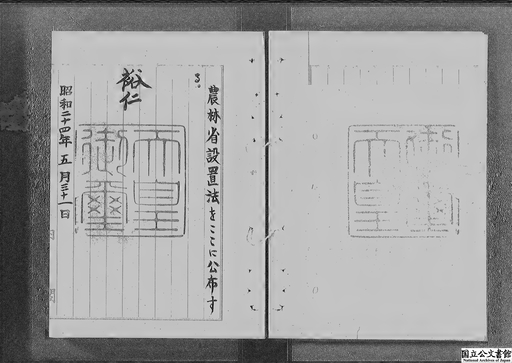 農林省設置法をここに公布する。
裕仁
天皇
御璽
昭和二十四年五月三十一日
国立公文書館
National Archives of Japan